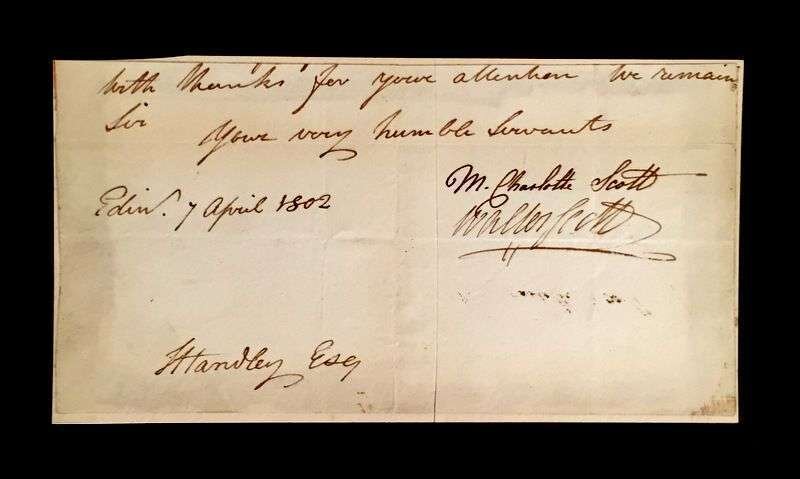 with thanks for your attention We remain
Sir
Your very humble Servants
Edinr. 7 April 1802
M. Charlotte Scott
Walter Scott
Handley Esq